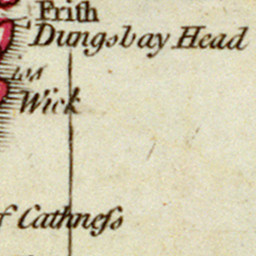 Frith
Dungsbay Head
Wick
f Cathneſs